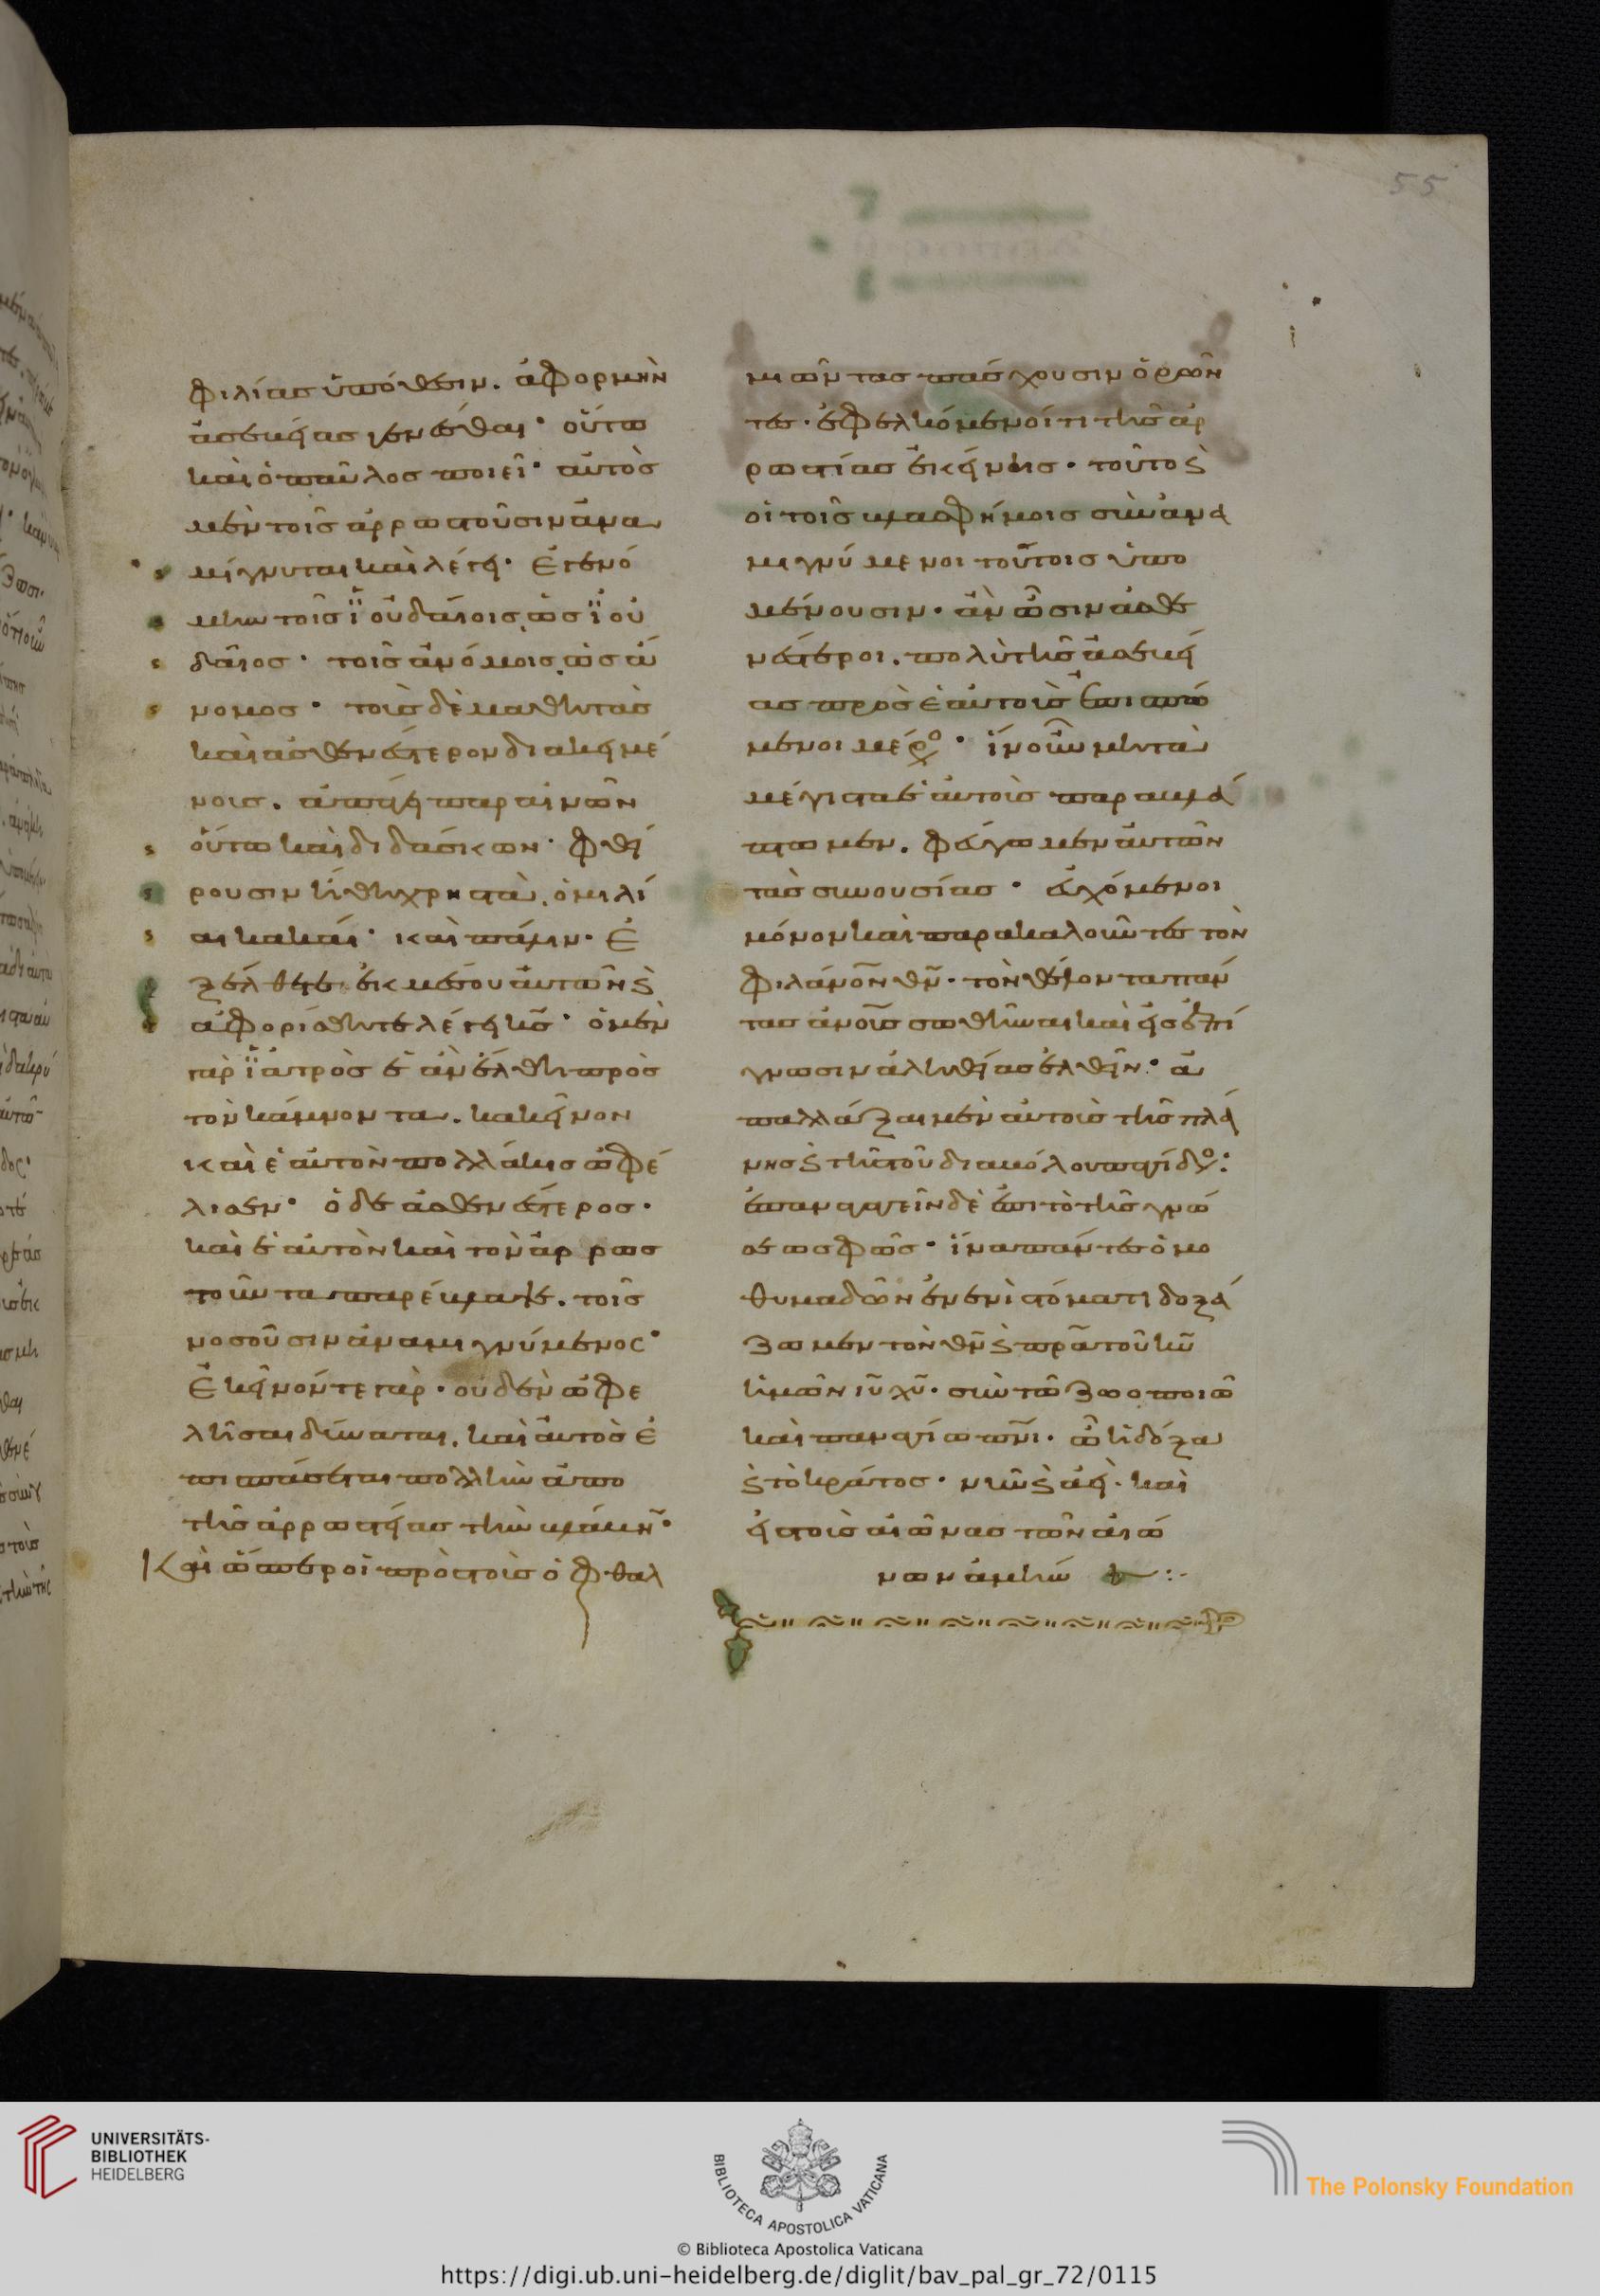 55
φιλίας ὑπόθεσιν. ἀφορμὴν
ἀσεβείας γενέσθαι· οὕτω
καὶ ὁ παῦλος ποιεῖ· αὐτὸς
μὲν τοῖς ἀρρωστοῦσιν ἀνα
μίγνυται καὶ λέγει· Ἐγενό
μην τοῖς ἰουδαίοις, ὡς ἰου
δαῖος· τοῖς ἀνόμοις, ὡς ἄ
νομος· τοὺς δὲ μαθητὰς
καὶ ἀσθενέστερον διακειμέ
νους. ἀπάγει παραινῶν
οὕτω καὶ διδάσκων· φθεί
ρουσιν ἤθη χρηστὰ, ὁμιλί
αι κακαί· καὶ πάλιν· Ἐ
ξέλθετε ἐκ μέσου αὐτῶν ϗ
ἀφορίσθητε λέγει κς̅· ὁ μὲν
γὰρ ἰατρὸς ἐὰν ἔλθη πρὸς
τὸν κάμνοντα. κἀκεῖνον
καὶ ἑαυτὸν πολλάκις ὠφέ
λησεν· ὁ δὲ ἀσθενέστερος.
καὶ ἑαυτὸν καὶ τὸν ἀρρωσ
τοῦντα παρέβλαψε. τοῖς
νοσοῦσιν ἀναμιγνύμενος·
Ἐκεῖνόν τε γὰρ. οὐδὲν ὠφε
λῆσαι δύναται. καὶ αὐτὸς ἐ
πισπάσεται πολλὴν ἀπο
τῆς ἀρρωστείας τὴν βλάβην·
Καὶ ὥσπερ οἱ πρὸς τοὺς ὀφθαλ
μιῶντας πάσχουσιν ὁρῶν
τες. ἐφελκόμενοί τι τῆς ἀρ
ρωστίας ἐκείνης. τοῦτο ϗ
οἱ τοῖς βλασφήμοις συνανα
μιγνύμενοι τούτοις ὑπο
μένουσιν. ἂν ὦσιν ἀσθε
νέστεροι. πολὺ τῆς ἀσεβεί
ας πρὸς ἑαυτοὺς ἐπισπώ
μενοι μέρος· ἵν' οὖν μὴ τὰ
μέγιστα ἑαυτοὺς παραβλά
πτωμεν. φεύγωμεν αὐτῶν
τὰς συνουσίας· εὐχόμενοι
μόνον καὶ παρακαλοῦντες τὸν
φιλάνο̅ν̅ θν̅. τὸν θέλοντα πάν
τας ἀνο̅υ̅ς σωθῆναι καὶ εἰς ἐπί
γνωσιν ἀληθείας ἐλθεῖν· ἀ
παλλάξαι μὲν αὐτοὺς τῆς πλά
νης ϗ τῆς τοῦ διαβόλου παγίδος·
ἐπαναγαγεῖν δὲ ἐπὶ τὸ τῆς γνώ
σεως φῶς· ἵνα πάντες ὁμο
θυμαδὸν ἐν ἑνὶ στόματι δοξά
ζωμεν τὸν θν̅ ϗ πρ̅α τοῦ κυ̅
ἡμῶν ιυ̅ χυ̅. σὺν τῶ ζωοποιῶ
καὶ παναγίω πνι̅. ὧ ἡ δόξα
ϗ τὸ κράτος. νῦν ϗ ἀεὶ. καὶ
εἰς τοὺς αἰῶνας τῶν αἰώ
νων ἀμήν
UNIVERSITÄTS-
BIBLIOTHEK
HEIDELBERG
BIBLIOTECA APOSTOLICA VATICANA
The Polonsky Foundation
© Biblioteca Apostolica Vaticana
https://digi.ub.uni-heidelberg.de/diglit/bav_pal_gr_72/0115